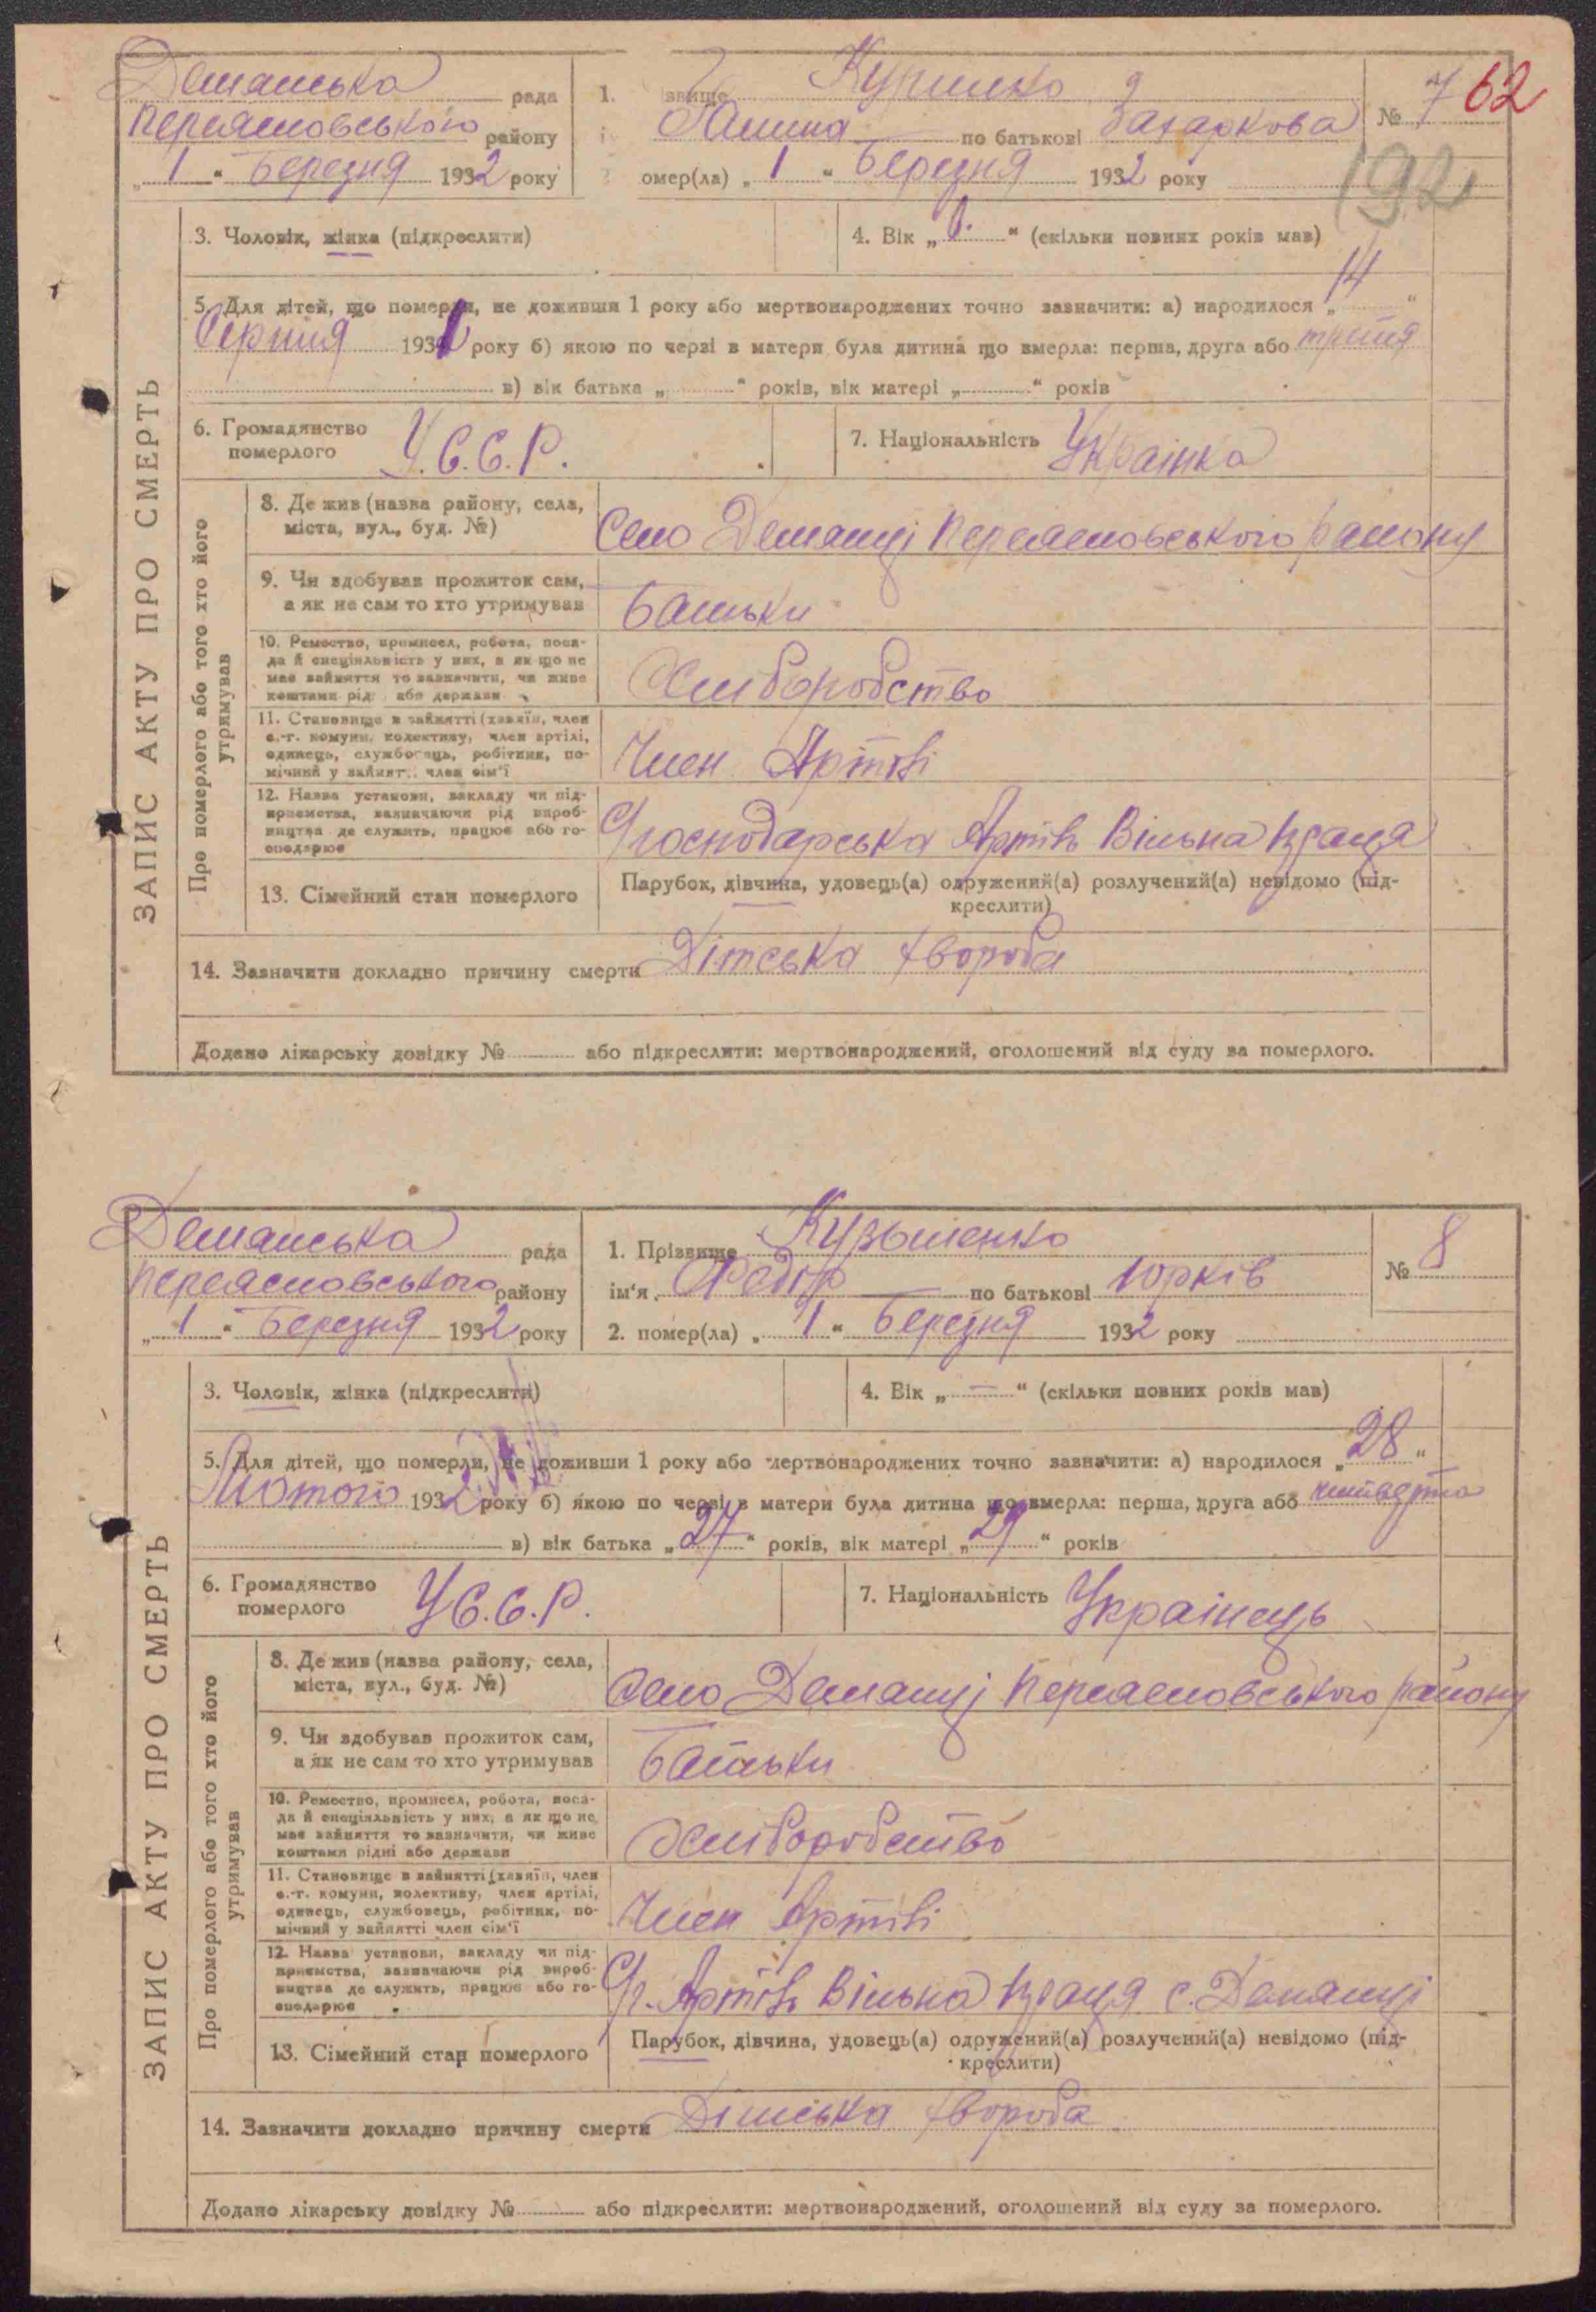 Демянська рада
Переясловського району
„1“ Березня 1932 року
1. звище Куришко
Ганна по батькові Захаркова
омер(ла) „1“ Березня 1932 року
№ 7
62
192
3. Чоловік, жінка (підкреслити)
4. Вік „ “ (скільки повних років мав)
5. Для дітей, що померли, не доживши 1 року або мертвонароджених точно зазначити: а) народилося „14“
Серпня 1931 року б) якою по черзі в матери була дитина що вмерла: перша, друга або третя
в) вік батька „ “ років, вік матері „ “ років
6. Громадянство
померлого
У.С.С.Р.
7. Національність Українка
ЗАПИС АКТУ ПРО СМЕРТЬ
Про померлого або того хто його
утримував
8. Де жив (назва району, села,
міста, вул., буд. №)
Село Демянці Переясловського району
9. Чи здобував прожиток сам,
а як не сам то хто утримував
Батьки
10. Ремество, промисел, робота, поса-
да й спеціяльність у них, а як що не
має зайняття то зазначити, чи живе
коштами рід або держави
Хліборобство
11. Становище в зайнятті (хазяїн, член
с.-г. комуни, колективу, член артілі,
одинець, службовець, робітник, по-
мічний у зайнят. член сім'ї
Член Артілі
12. Назва установи, закладу чи під-
приємства, зазначаючи рід вироб-
ництва де служить, працює або го-
сподарює
Господарська Артіль Вільна Праця
13. Сімейний стан померлого
Парубок, дівчина, удовець(а) одружений(а) розлучений(а) невідомо (під-
креслити)
14. Зазначити докладно причину смерти Дітська хвороба
Додано лікарську довідку № або підкреслити: мертвонароджений, оголошений від суду за померлого.
Демянська рада
Переясловського району
„1“ Березня 1932 року
1. Прізвище Кузьменко
ім'я Федір по батькові Юрків
2. помер(ла) „1“ Березня 1932 року
№ 8
3. Чоловік, жінка (підкреслити)
4. Вік „—“ (скільки повних років мав)
5. Для дітей, що померли, не доживши 1 року або мертвонароджених точно зазначити: а) народилося „28“
Лютого 1932 року б) якою по черзі в матери була дитина що вмерла: перша, друга або
в) вік батька „27“ років, вік матері „29“ років
6. Громадянство
померлого
УС.С.Р.
7. Національність Українець
ЗАПИС АКТУ ПРО СМЕРТЬ
Про померлого або того хто його
утримував
8. Де жив (назва району, села,
міста, вул., буд. №)
Село Демянці Переясловського району
9. Чи здобував прожиток сам,
а як не сам то хто утримував
Батьки
10. Ремество, промисел, робота, поса-
да й спеціяльність у них, а як що не
має зайняття то зазначити, чи живе
коштами рідні або держави
Хліборобство
11. Становище в зайнятті (хазяїн, член
с.-г. комуни, колективу, член артілі,
одинець, службовець, робітник, по-
мічний у зайнятті член сім'ї
Член Артілі
12. Назва установи, закладу чи під-
приємства, зазначаючи рід вироб-
ництва де служить, працює або го-
сподарює
Гр. Артіль Вільна Праця с. Демянці
13. Сімейний стан померлого
Парубок, дівчина, удовець(а) одружений(а) розлучений(а) невідомо (під-
креслити)
14. Зазначити докладно причину смерти Дітська хвороба
Додано лікарську довідку № або підкреслити: мертвонароджений, оголошений від суду за померлого.